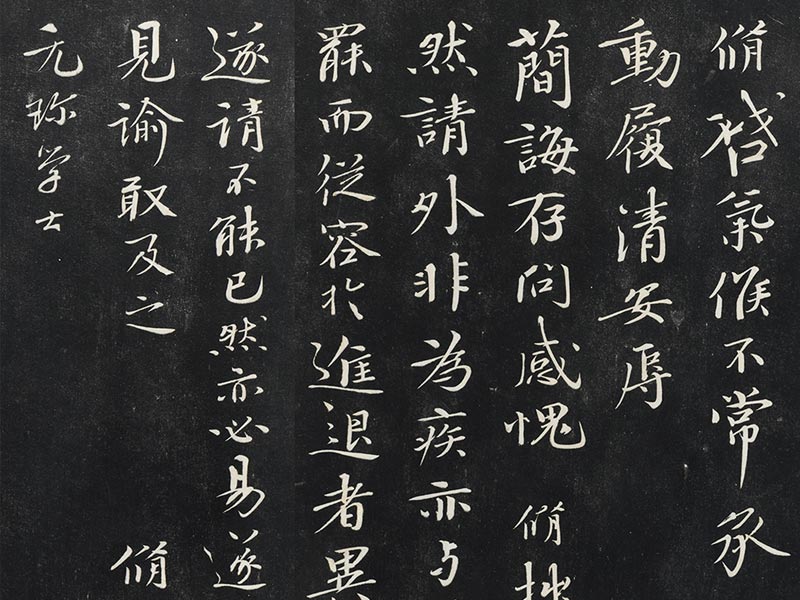 脩啓氣候不常承
動履清安辱
簡誨存問感愧 脩拙
然請外非為疾亦与
罷而從容於進退者異
遂請不能已然亦必易遂
見諭敢及之 脩
元珎学士